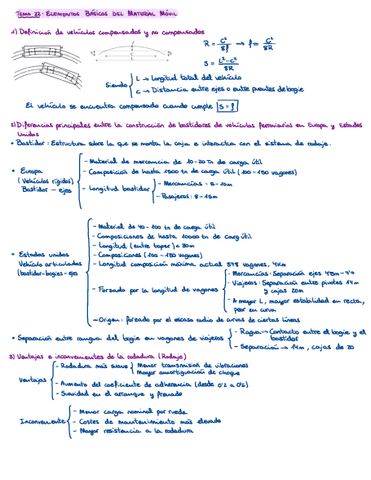 Tema 22: Elementos Básicos del Material Móvil
1) Definición de vehículos compensados y no compensados
R = C²/8f → f = C²/8R
S = L²-C²/8R
Siendo L → Longitud total del vehículo
C → Distancia entre ejes o entre pivotes de bogie
El vehículo se encuentra compensado cuando cumple S = f
2) Diferencias principales entre la construcción de bastidores de vehículos ferroviarios en Europa y Estados
Unidos
• Bastidor: Estructura sobre la que se monta la caja e interactúa con el sistema de rodaje.
• Europa
(Vehículos rígidos)
Bastidor - ejes
- Material de mercancía de 10-20 Tn de carga útil
- Composición de hasta 1500 tn de carga útil (100-150 vagones)
- Longitud bastidor
- Mercancías: 5-10m
- Pasajeros: 8-18m
• Estados unidos
Vehículos articulados
(bastidor-bogies-ejes)
- Material de 40-100 tn de carga útil
- Composiciones de hasta 10000 tn de carg útil
- Longitud (entre topes) < 30m
- Composiciones (100-150 vagones)
- Longitud composición máxima actual 578 vagones, 7Km
- Forzado por la longitud de vagones
- Mercancías: Separación ejes
- Viajeros: Separación entre pivotes 17m
y cajas 20m
- A mayor L, mayor estabilidad en recta,
peor en curva
- Origen: forzado por el escaso radio de curvas de ciertas líneas
• Separación entre rangua del bogie en vagones de viajeros
- Rangua → Contacto entre el bogie y el
bastidor
- Separación → 14m, cajas de 20
3) Ventajas e inconvenientes de la rodadura (Rodaje)
Ventajas
- Rodadura más suave
Menor transmisión de vibraciones
Mayor amortiguación de choque
- Aumento del coeficiente de adherencia (desde 0'2 a 0'5)
- Suavidad en el arranque y frenado
Inconveniente
- Menor carga nominal por rueda
- Costes de mantenimiento más elevado
- Mayor resistencia a la rodadura